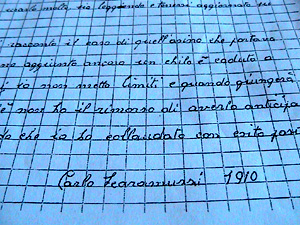 molto, sia leggendo e tenersi aggiornato sui
racconto il caso di quell'asino che portava
no aggiunto ancora un chilo è caduto a
io non metto limiti e quando giungerà
non ho il rimorso di averlo anticipa
do che io ho collaudato con esito posi
Carlo Scaramussi 1910